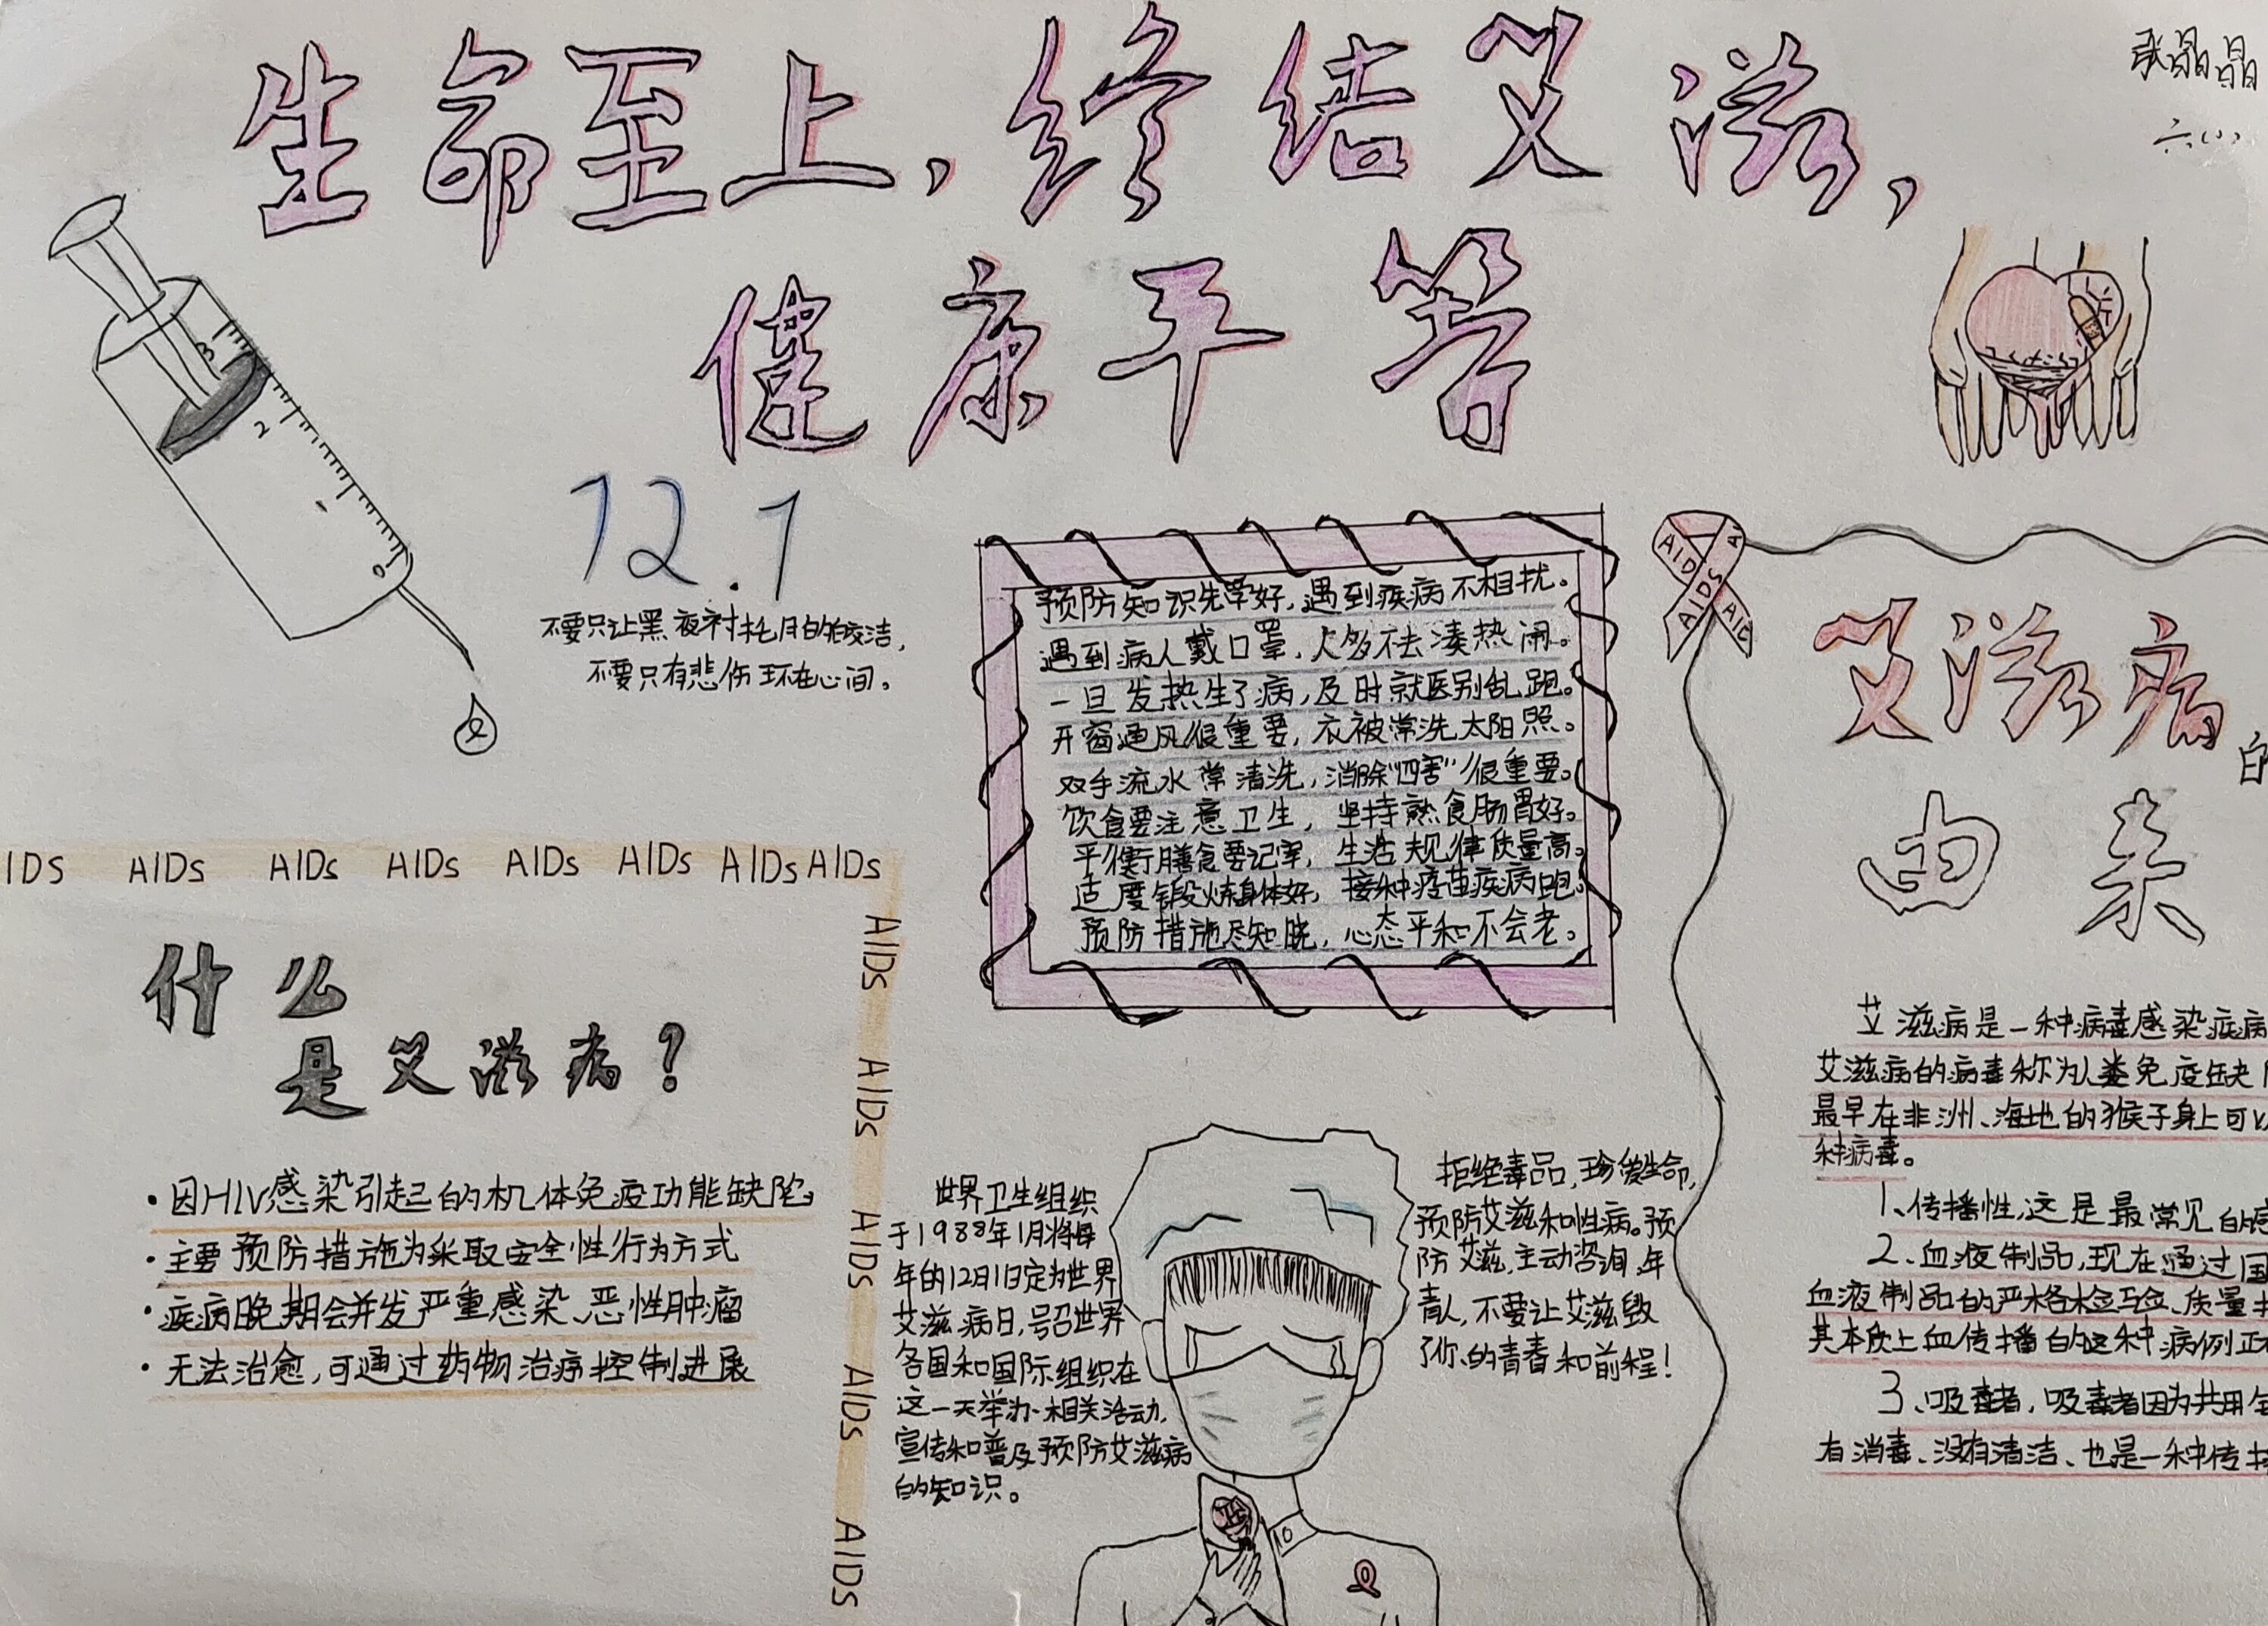 生命至上，终结艾滋，
健康平等
张晶晶
六(1)
3
2
1
0
12.1
不要只让黑夜衬托月的皎洁，
不要只有悲伤环在心间。
预防知识先学好，遇到疾病不相扰。
遇到病人戴口罩，人多不去凑热闹。
一旦发热生了病，及时就医别乱跑。
开窗通风很重要，衣被常洗太阳照。
双手流水常清洗，消除“四害”很重要。
饮食要注意卫生，坚持熟食肠胃好。
平衡膳食要记牢，生活规律质量高。
适度锻炼身体好，接种疫苗疾病跑。
预防措施尽知晓，心态平和不会老。
AIDS
AIDS
AIDS
艾滋病的
由来
艾滋病是一种病毒感染疾病
艾滋病的病毒称为人类免疫缺
最早在非洲、海地的猴子身上可以
种病毒。
1、传播性，这是最常见的感
2、血液制品，现在通过国
血液制品的严格检验、质量
其本质上血传播的这种病例正
3、吸毒者，吸毒者因为共用
有消毒、没有清洁、也是一种传播
IDS AIDs AIDs AIDs AIDs AIDs AIDs AIDs
AIDs
AIDs
AIDs
AIDs
AIDs
什么
是艾滋病？
·因HIV感染引起的机体免疫功能缺陷
·主要预防措施为采取安全性行为方式
·疾病晚期会并发严重感染、恶性肿瘤
·无法治愈，可通过药物治疗控制进展
世界卫生组织
于1988年1月将每
年的12月1日定为世界
艾滋病日，号召世界
各国和国际组织在
这一天举办相关活动，
宣传和普及预防艾滋病
的知识。
拒绝毒品，珍爱生命，
预防艾滋和性病。预
防艾滋，主动咨询，年
青人，不要让艾滋毁
了你的青春和前程！